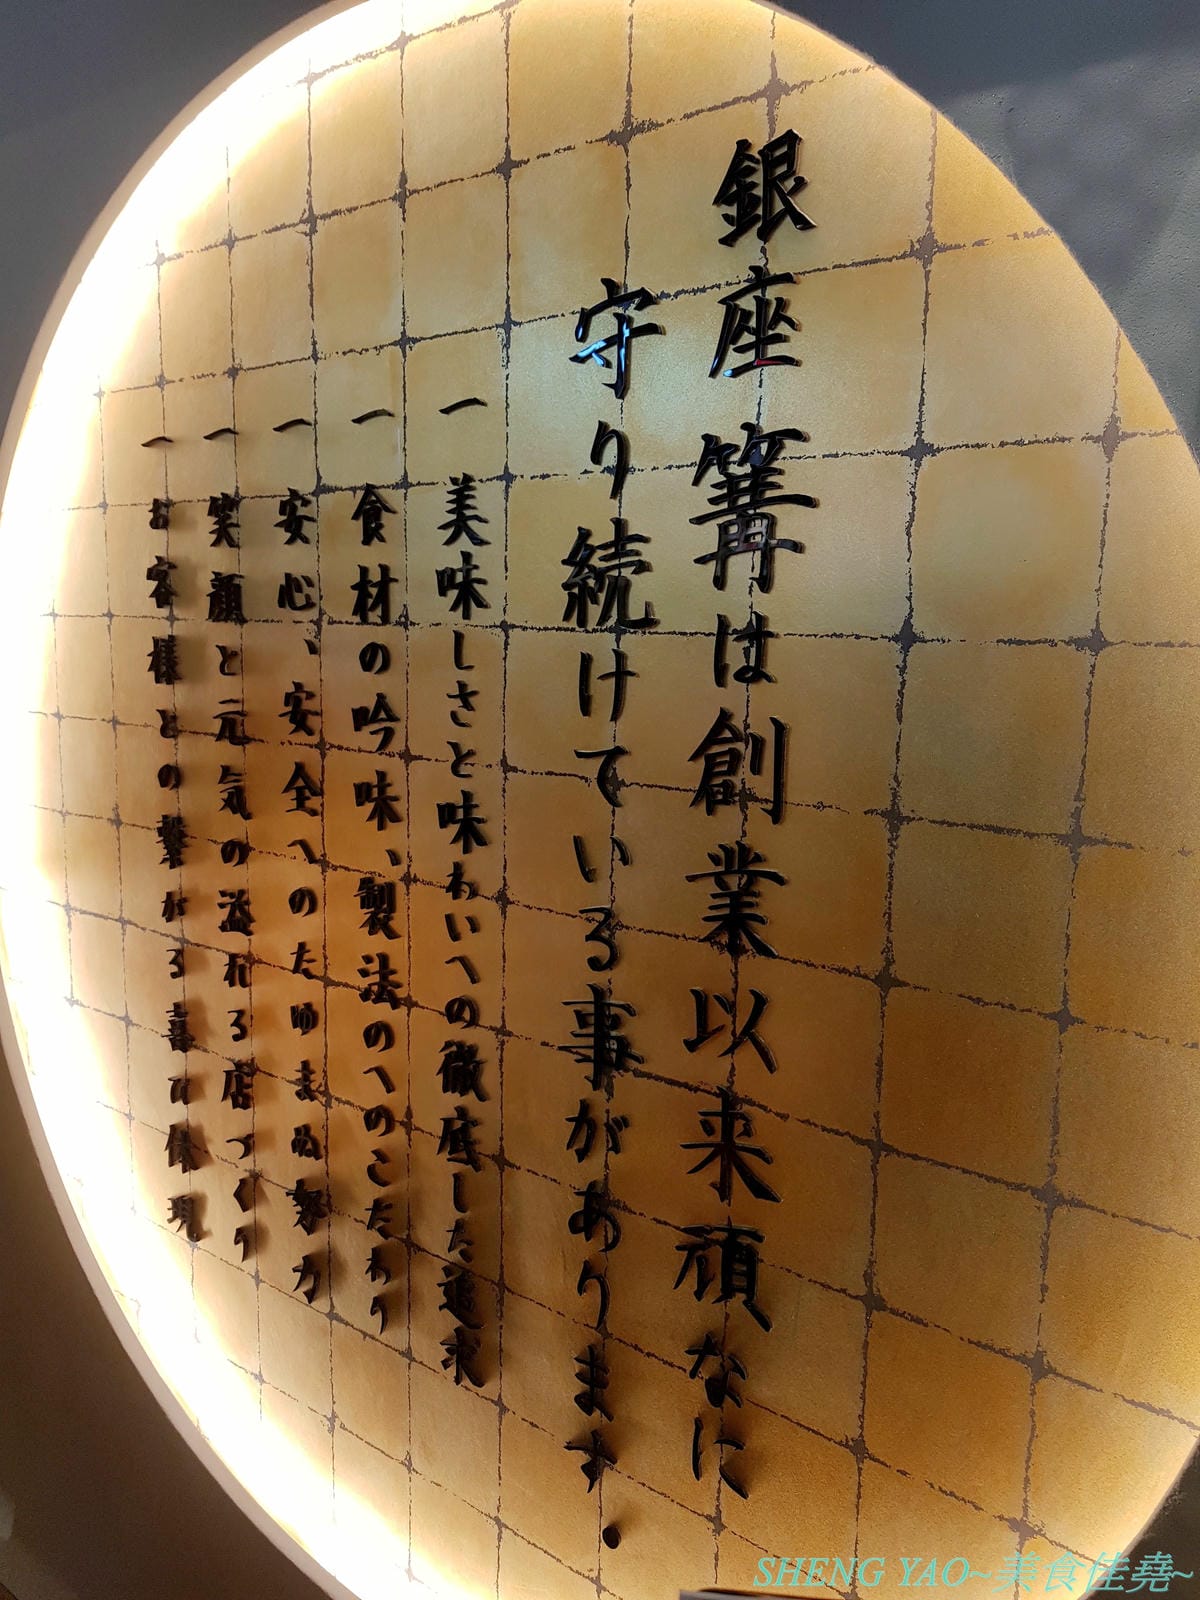 銀座 篝は創業以来頑なに
守り続けている事があります.
一 美味しさと味わいへの徹底した追求
一 食材の吟味、製法のへのこだわり
一 安心、安全へのたゆまぬ努力
一 笑顔と元気の溢れる店づくり
一 お客様との繋がる喜び体現
SHENG YAO~美食佳堯~